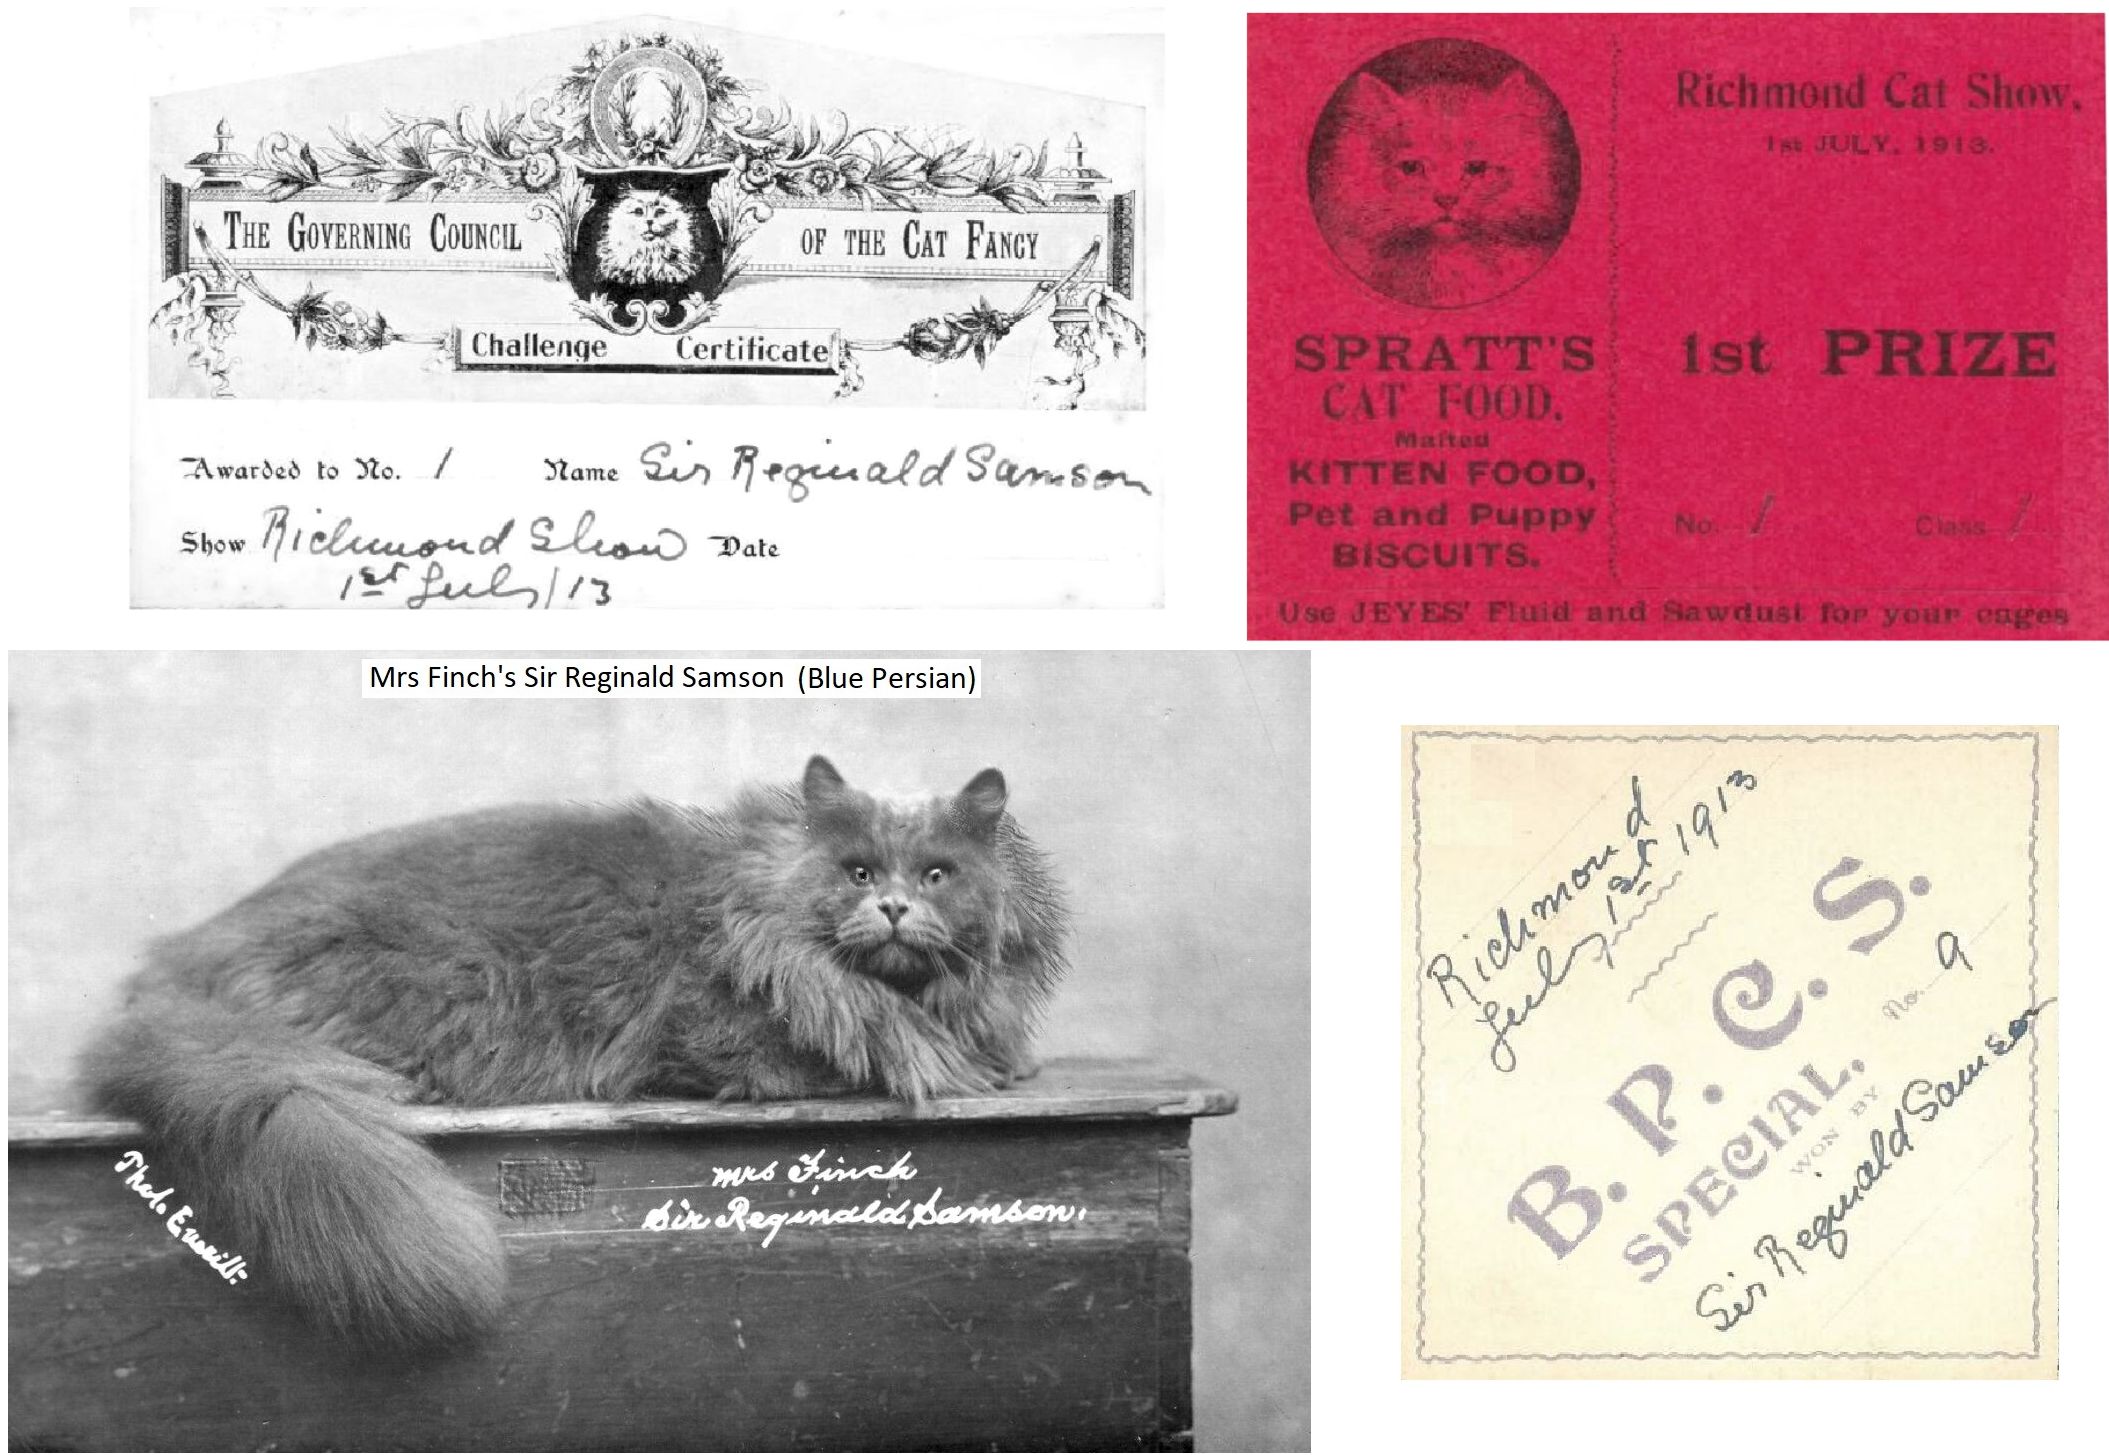 THE GOVERNING COUNCIL OF THE CAT FANCY
Challenge Certificate
Awarded to No. 1 Name Sir Reginald Samson
Show Richmond Show Date
1st July/13
Richmond Cat Show.
1st JULY, 1913.
SPRATT'S
CAT FOOD.
Malted
KITTEN FOOD,
Pet and Puppy
BISCUITS.
1st PRIZE
No. 1 Class 1
Use JEYES' Fluid and Sawdust for your cages
Mrs Finch's Sir Reginald Samson (Blue Persian)
Mrs Finch
Sir Reginald Samson.
Richmond
July 1st 1913
B. P. C. S.
SPECIAL,
No. 9
WON BY
Sir Reginald Samson